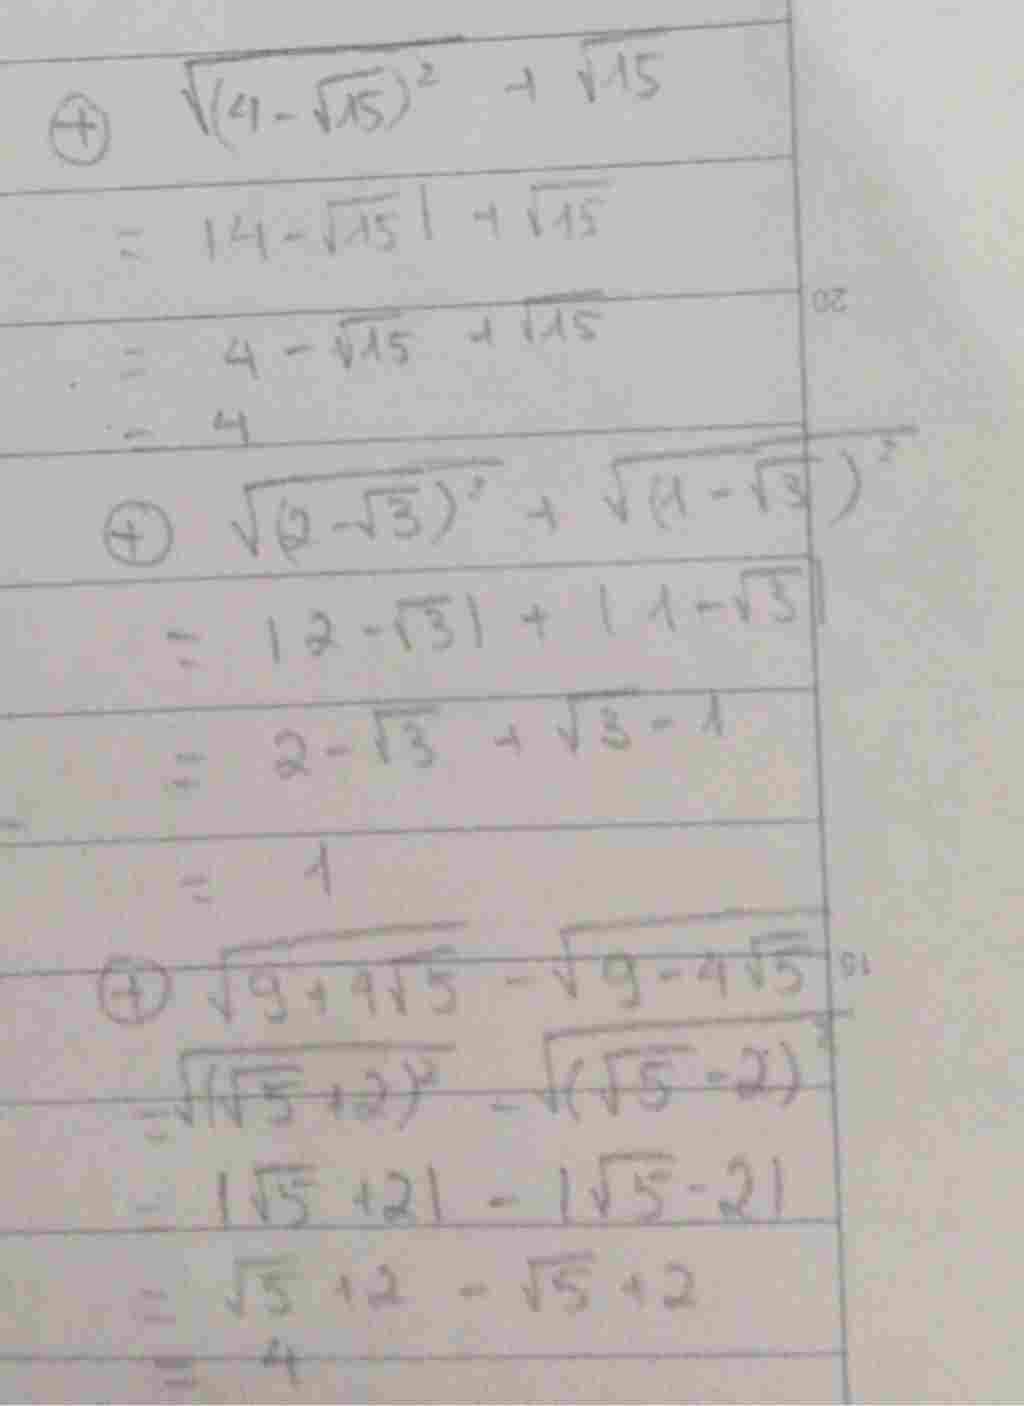 ⊕ √((4-√15)²) + √15
= |4-√15| + √15
= 4 - √15 + √15
20
= 4
⊕ √((2-√3)²) + √((1-√3)²)
= |2-√3| + |1-√3|
= 2-√3 + √3-1
= 1
⊕ √(9+4√5) - √(9-4√5)
15
= √((√5+2)²) - √((√5-2)²)
= |√5+2| - |√5-2|
= √5+2 - √5+2
= 4